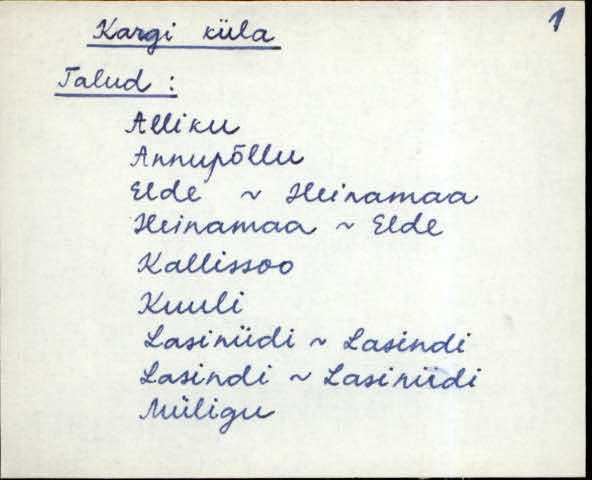 1
Kargi küla
Talud :
Alliku
Annupõllu
Elde ~ Heinamaa
Heinamaa ~ Elde
Kallissoo
Kuuli
Lasiniidi ~ Lasindi
Lasindi ~ Lasiniidi
Müligu